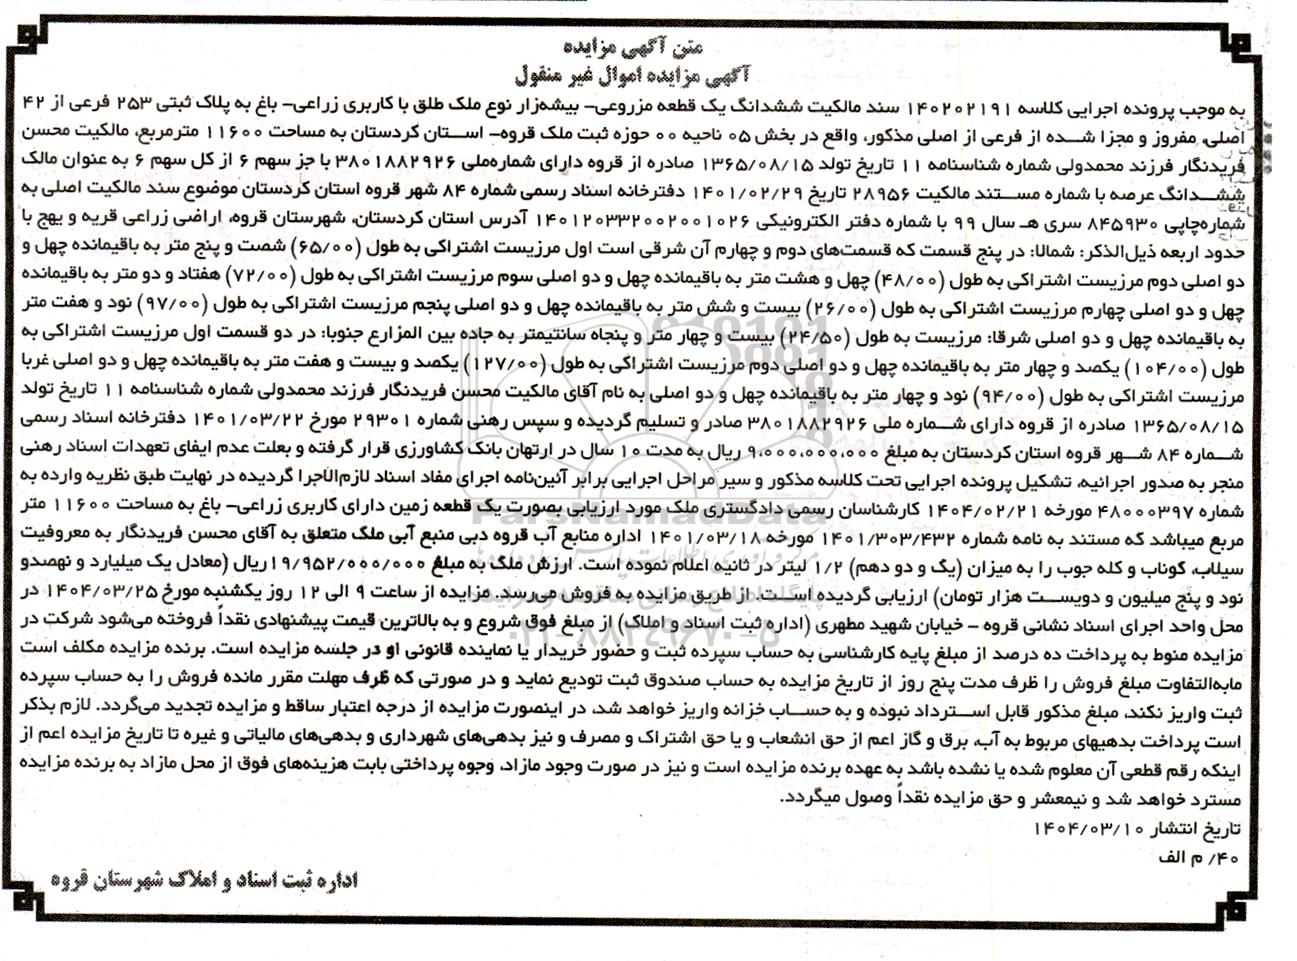 متن آگهی مزایده
آگهی مزایده اموال غیر منقول
به موجب پرونده اجرایی کلاسه ۱۴۰۲۰۲۱۹۱ سند مالکیت ششدانگ یک قطعه مزروعی- بیشه‌زار نوع ملک طلق با کاربری زراعی- باغ به پلاک ثبتی ۲۵۳ فرعی از ۴۲
اصلی، مفروز و مجزا شده از فرعی از اصلی مذکور، واقع در بخش ۰۵ ناحیه ۰۰ حوزه ثبت ملک قروه- استان کردستان به مساحت ۱۱۶۰۰ مترمربع، مالکیت محسن
فریدنگار فرزند محمدولی شماره شناسنامه ۱۱ تاریخ تولد ۱۳۶۵/۰۸/۱۵ صادره از قروه دارای شماره‌ملی ۳۸۰۱۸۸۲۹۲۶ با جز سهم ۶ از کل سهم ۶ به عنوان مالک
ششدانگ عرصه با شماره مستند مالکیت ۲۸۹۵۶ تاریخ ۱۴۰۱/۰۲/۲۹ دفترخانه اسناد رسمی شماره ۸۴ شهر قروه استان کردستان موضوع سند مالکیت اصلی به
شماره‌چاپی ۸۴۵۹۳۰ سری هـ سال ۹۹ با شماره دفتر الکترونیکی ۱۴۰۱۲۰۳۳۲۰۰۲۰۰۱۰۲۶ آدرس استان کردستان، شهرستان قروه، اراضی زراعی قریه و یهج با
حدود اربعه ذیل‌الذکر: شمالا: در پنج قسمت که قسمت‌های دوم و چهارم آن شرقی است اول مرزیست اشتراکی به طول (۶۵/۰۰) شصت و پنج متر به باقیمانده چهل و
دو اصلی دوم مرزیست اشتراکی به طول (۴۸/۰۰) چهل و هشت متر به باقیمانده چهل و دو اصلی سوم مرزیست اشتراکی به طول (۷۲/۰۰) هفتاد و دو متر به باقیمانده
چهل و دو اصلی چهارم مرزیست اشتراکی به طول (۲۶/۰۰) بیست و شش متر به باقیمانده چهل و دو اصلی پنجم مرزیست اشتراکی به طول (۹۷/۰۰) نود و هفت متر
به باقیمانده چهل و دو اصلی شرقا: مرزیست به طول (۲۴/۵۰) بیست و چهار متر و پنجاه سانتیمتر به جاده بین المزارع جنوبا: در دو قسمت اول مرزیست اشتراکی به
طول (۱۰۴/۰۰) یکصد و چهار متر به باقیمانده چهل و دو اصلی دوم مرزیست اشتراکی به طول (۱۲۷/۰۰) یکصد و بیست و هفت متر به باقیمانده چهل و دو اصلی غربا
مرزیست اشتراکی به طول (۹۴/۰۰) نود و چهار متر به باقیمانده چهل و دو اصلی به نام آقای مالکیت محسن فریدنگار فرزند محمدولی شماره شناسنامه ۱۱ تاریخ تولد
۱۳۶۵/۰۸/۱۵ صادره از قروه دارای شماره ملی ۳۸۰۱۸۸۲۹۲۶ صادر و تسلیم گردیده و سپس رهنی شماره ۲۹۳۰۱ مورخ ۱۴۰۱/۰۳/۲۲ دفترخانه اسناد رسمی
شماره ۸۴ شهر قروه استان کردستان به مبلغ ۹,۰۰۰,۰۰۰,۰۰۰ ریال به مدت ۱۰ سال در ارتهان بانک کشاورزی قرار گرفته و بعلت عدم ایفای تعهدات اسناد رهنی
منجر به صدور اجرائیه، تشکیل پرونده اجرایی تحت کلاسه مذکور و سیر مراحل اجرایی برابر آئین‌نامه اجرای مفاد اسناد لازم‌الاجرا گردیده در نهایت طبق نظریه وارده به
شماره ۴۸۰۰۰۳۹۷ مورخه ۱۴۰۴/۰۲/۲۱ کارشناسان رسمی دادگستری ملک مورد ارزیابی بصورت یک قطعه زمین دارای کاربری زراعی- باغ به مساحت ۱۱۶۰۰ متر
مربع میباشد که مستند به نامه شماره ۱۴۰۱/۳۰۳/۴۳۲ مورخه ۱۴۰۱/۰۳/۱۸ اداره منابع آب قروه دبی منبع آبی ملک متعلق به آقای محسن فریدنگار به معروفیت
سیلاب، کوناب و کله جوب را به میزان (یک و دو دهم) ۱/۲ لیتر در ثانیه اعلام نموده است. ارزش ملک به مبلغ ۱۹/۹۵۲/۰۰۰/۰۰۰ریال (معادل یک میلیارد و نهصدو
نود و پنج میلیون و دویست هزار تومان) ارزیابی گردیده است. از طریق مزایده به فروش می‌رسد. مزایده از ساعت ۹ الی ۱۲ روز یکشنبه مورخ ۱۴۰۴/۰۳/۲۵ در
محل واحد اجرای اسناد نشانی قروه - خیابان شهید مطهری (اداره ثبت اسناد و املاک) از مبلغ فوق شروع و به بالاترین قیمت پیشنهادی نقداً فروخته می‌شود شرکت در
مزایده منوط به پرداخت ده درصد از مبلغ پایه کارشناسی به حساب سپرده ثبت و حضور خریدار یا نماینده قانونی او در جلسه مزایده است. برنده مزایده مکلف است
مابه‌التفاوت مبلغ فروش را ظرف مدت پنج روز از تاریخ مزایده به حساب صندوق ثبت تودیع نماید و در صورتی که ظرف مهلت مقرر مانده فروش را به حساب سپرده
ثبت واریز نکند، مبلغ مذکور قابل استرداد نبوده و به حساب خزانه واریز خواهد شد، در اینصورت مزایده از درجه اعتبار ساقط و مزایده تجدید می‌گردد. لازم بذکر
است پرداخت بدهیهای مربوط به آب، برق و گاز اعم از حق انشعاب و یا حق اشتراک و مصرف و نیز بدهی‌های شهرداری و بدهی‌های مالیاتی و غیره تا تاریخ مزایده اعم از
اینکه رقم قطعی آن معلوم شده یا نشده باشد به عهده برنده مزایده است و نیز در صورت وجود مازاد، وجوه پرداختی بابت هزینه‌های فوق از محل مازاد به برنده مزایده
مسترد خواهد شد و نیمعشر و حق مزایده نقداً وصول میگردد.
تاریخ انتشار ۱۴۰۴/۰۳/۱۰
۴۰/ م الف
اداره ثبت اسناد و املاک شهرستان قروه
ParsNamadData
۰۲۱-۸۸۳۴۹۶۷۰-۵